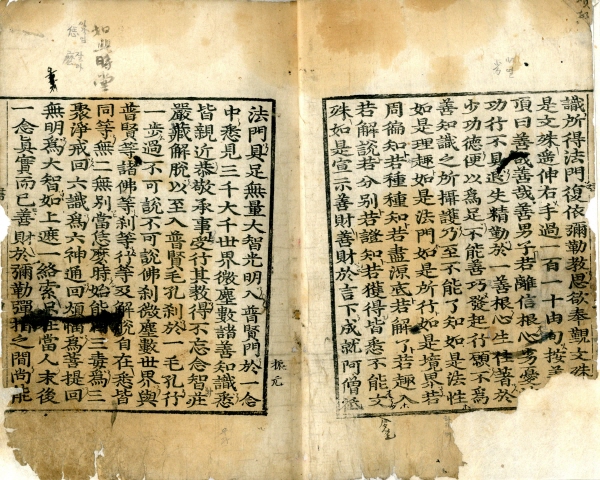 識所得法門復依彌勒教思欲奉覲文殊
是文殊遙伸右手過一百一十由旬按
頂曰善哉善哉善男子若離信根心劣憂
功行不具退失精勤於一善根心生住著於
少功德便以爲足不能善巧發起行願不爲
善知識之所攝護乃至不能了知如是法性
如是理趣如是法門如是所行如是境界若
周徧知若種種知若盡源底若解了若趣入
若解說若分別若證知若獲得皆悉不能文
殊如是宣示善財善財於言下成就阿僧祇
振元
法門具足無量大智光明入普賢門於一念
中悉見三千大千世界微塵數諸善知識悉
皆親近恭敬承事受行其教得不忘念智莊
嚴藏解脫以至入普賢毛孔刹於一毛孔行
一步過不可說不可說佛刹微塵數世界與
普賢等諸佛等刹等行等及解脫自在悉皆
同等無二無別當恁麼時始能三毒爲三
聚淨戒回六識爲六神通回煩惱爲菩提回
無明爲大智如上遮一絡索在當人末後
一念眞實而已善財於彌勒彈指之間尚能